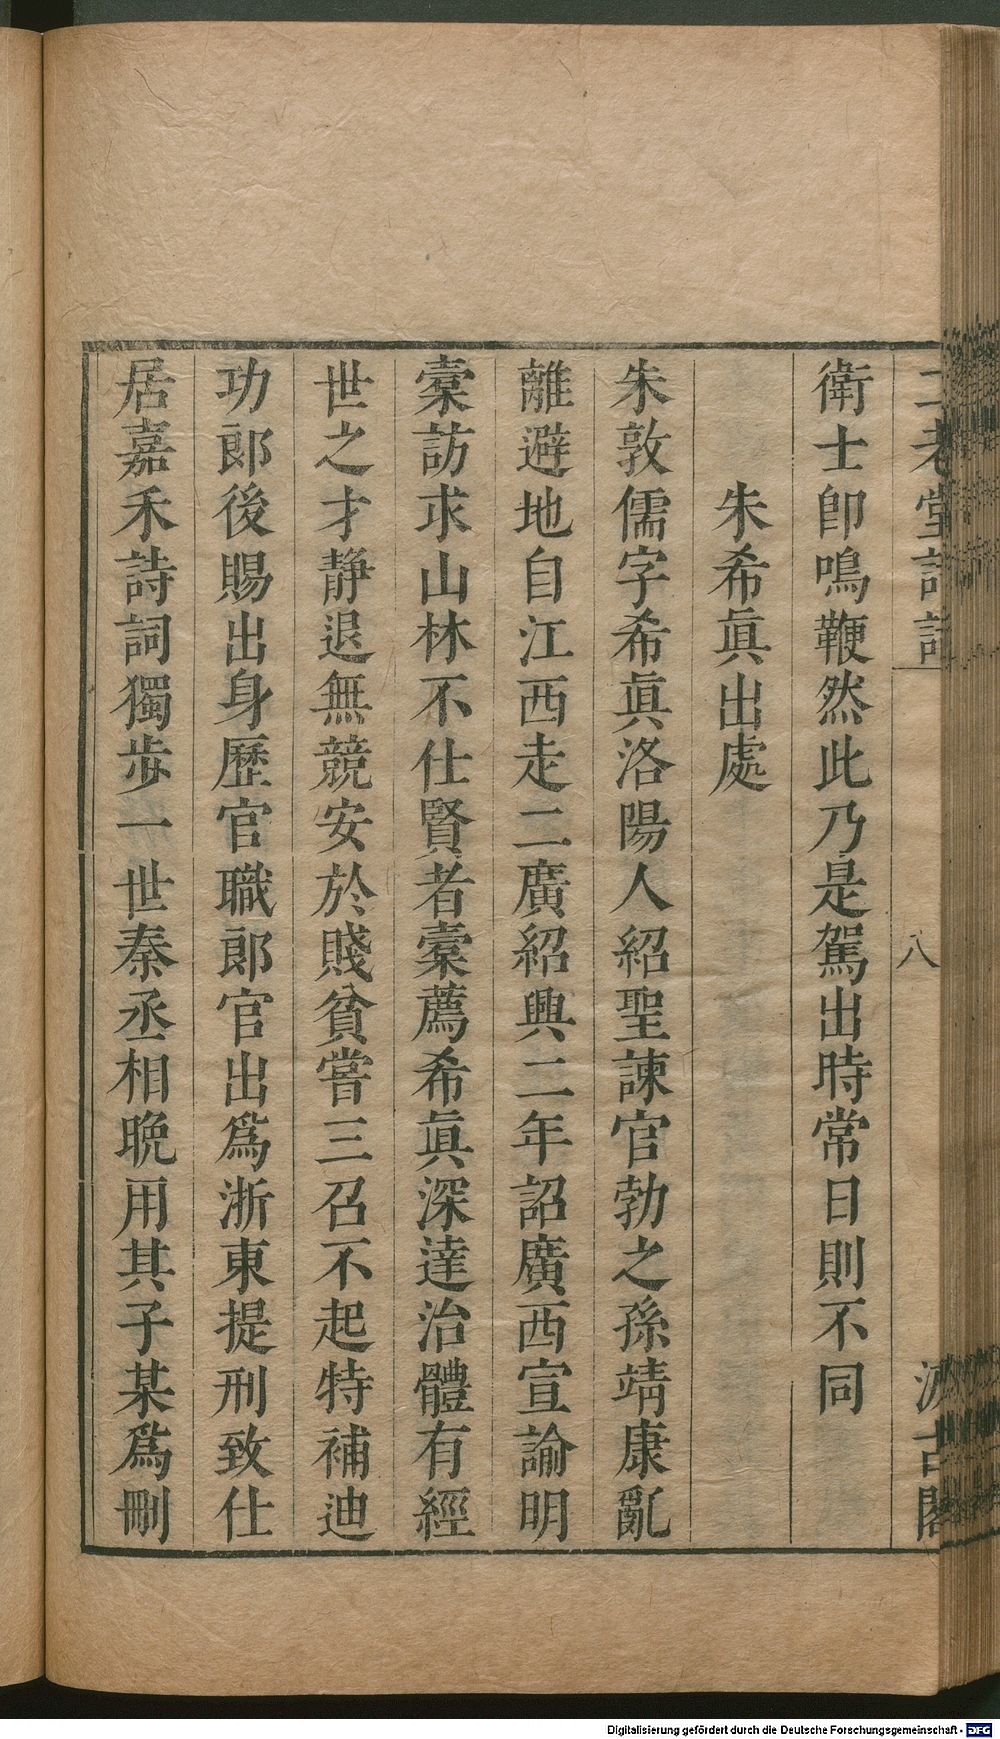 二老堂詩話
八
汲古閣
衛士卽鳴鞭然此乃是駕出時常日則不同
朱希眞出處
朱敦儒字希眞洛陽人紹聖諫官勃之孫靖康亂
離避地自江西走二廣紹興二年詔廣西宣諭明
橐訪求山林不仕賢者橐薦希眞深達治體有經
世之才靜退無競安於賤貧嘗三召不起特補迪
功郎後賜出身歷官職郎官出爲浙東提刑致仕
居嘉禾詩詞獨步一世秦丞相晩用其子某爲刪
Digitalisierung gefördert durch die Deutsche Forschungsgemeinschaft - DFG